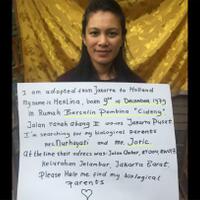 I am adopted from Jakarta to Holland
My name is Herlina, born 9th December 1979
in Rumah Bersalin Pembina "Cideng"
Jalan Tanah Abang Jakarta Pusat.
I'm searching for my biological parents
Mrs. Nurhayati and Mr. Jotic.
At the time their adress was: Jalan
Kelurahan Jelambar, Jakarta Barat.
Please Help me find my biological
parents